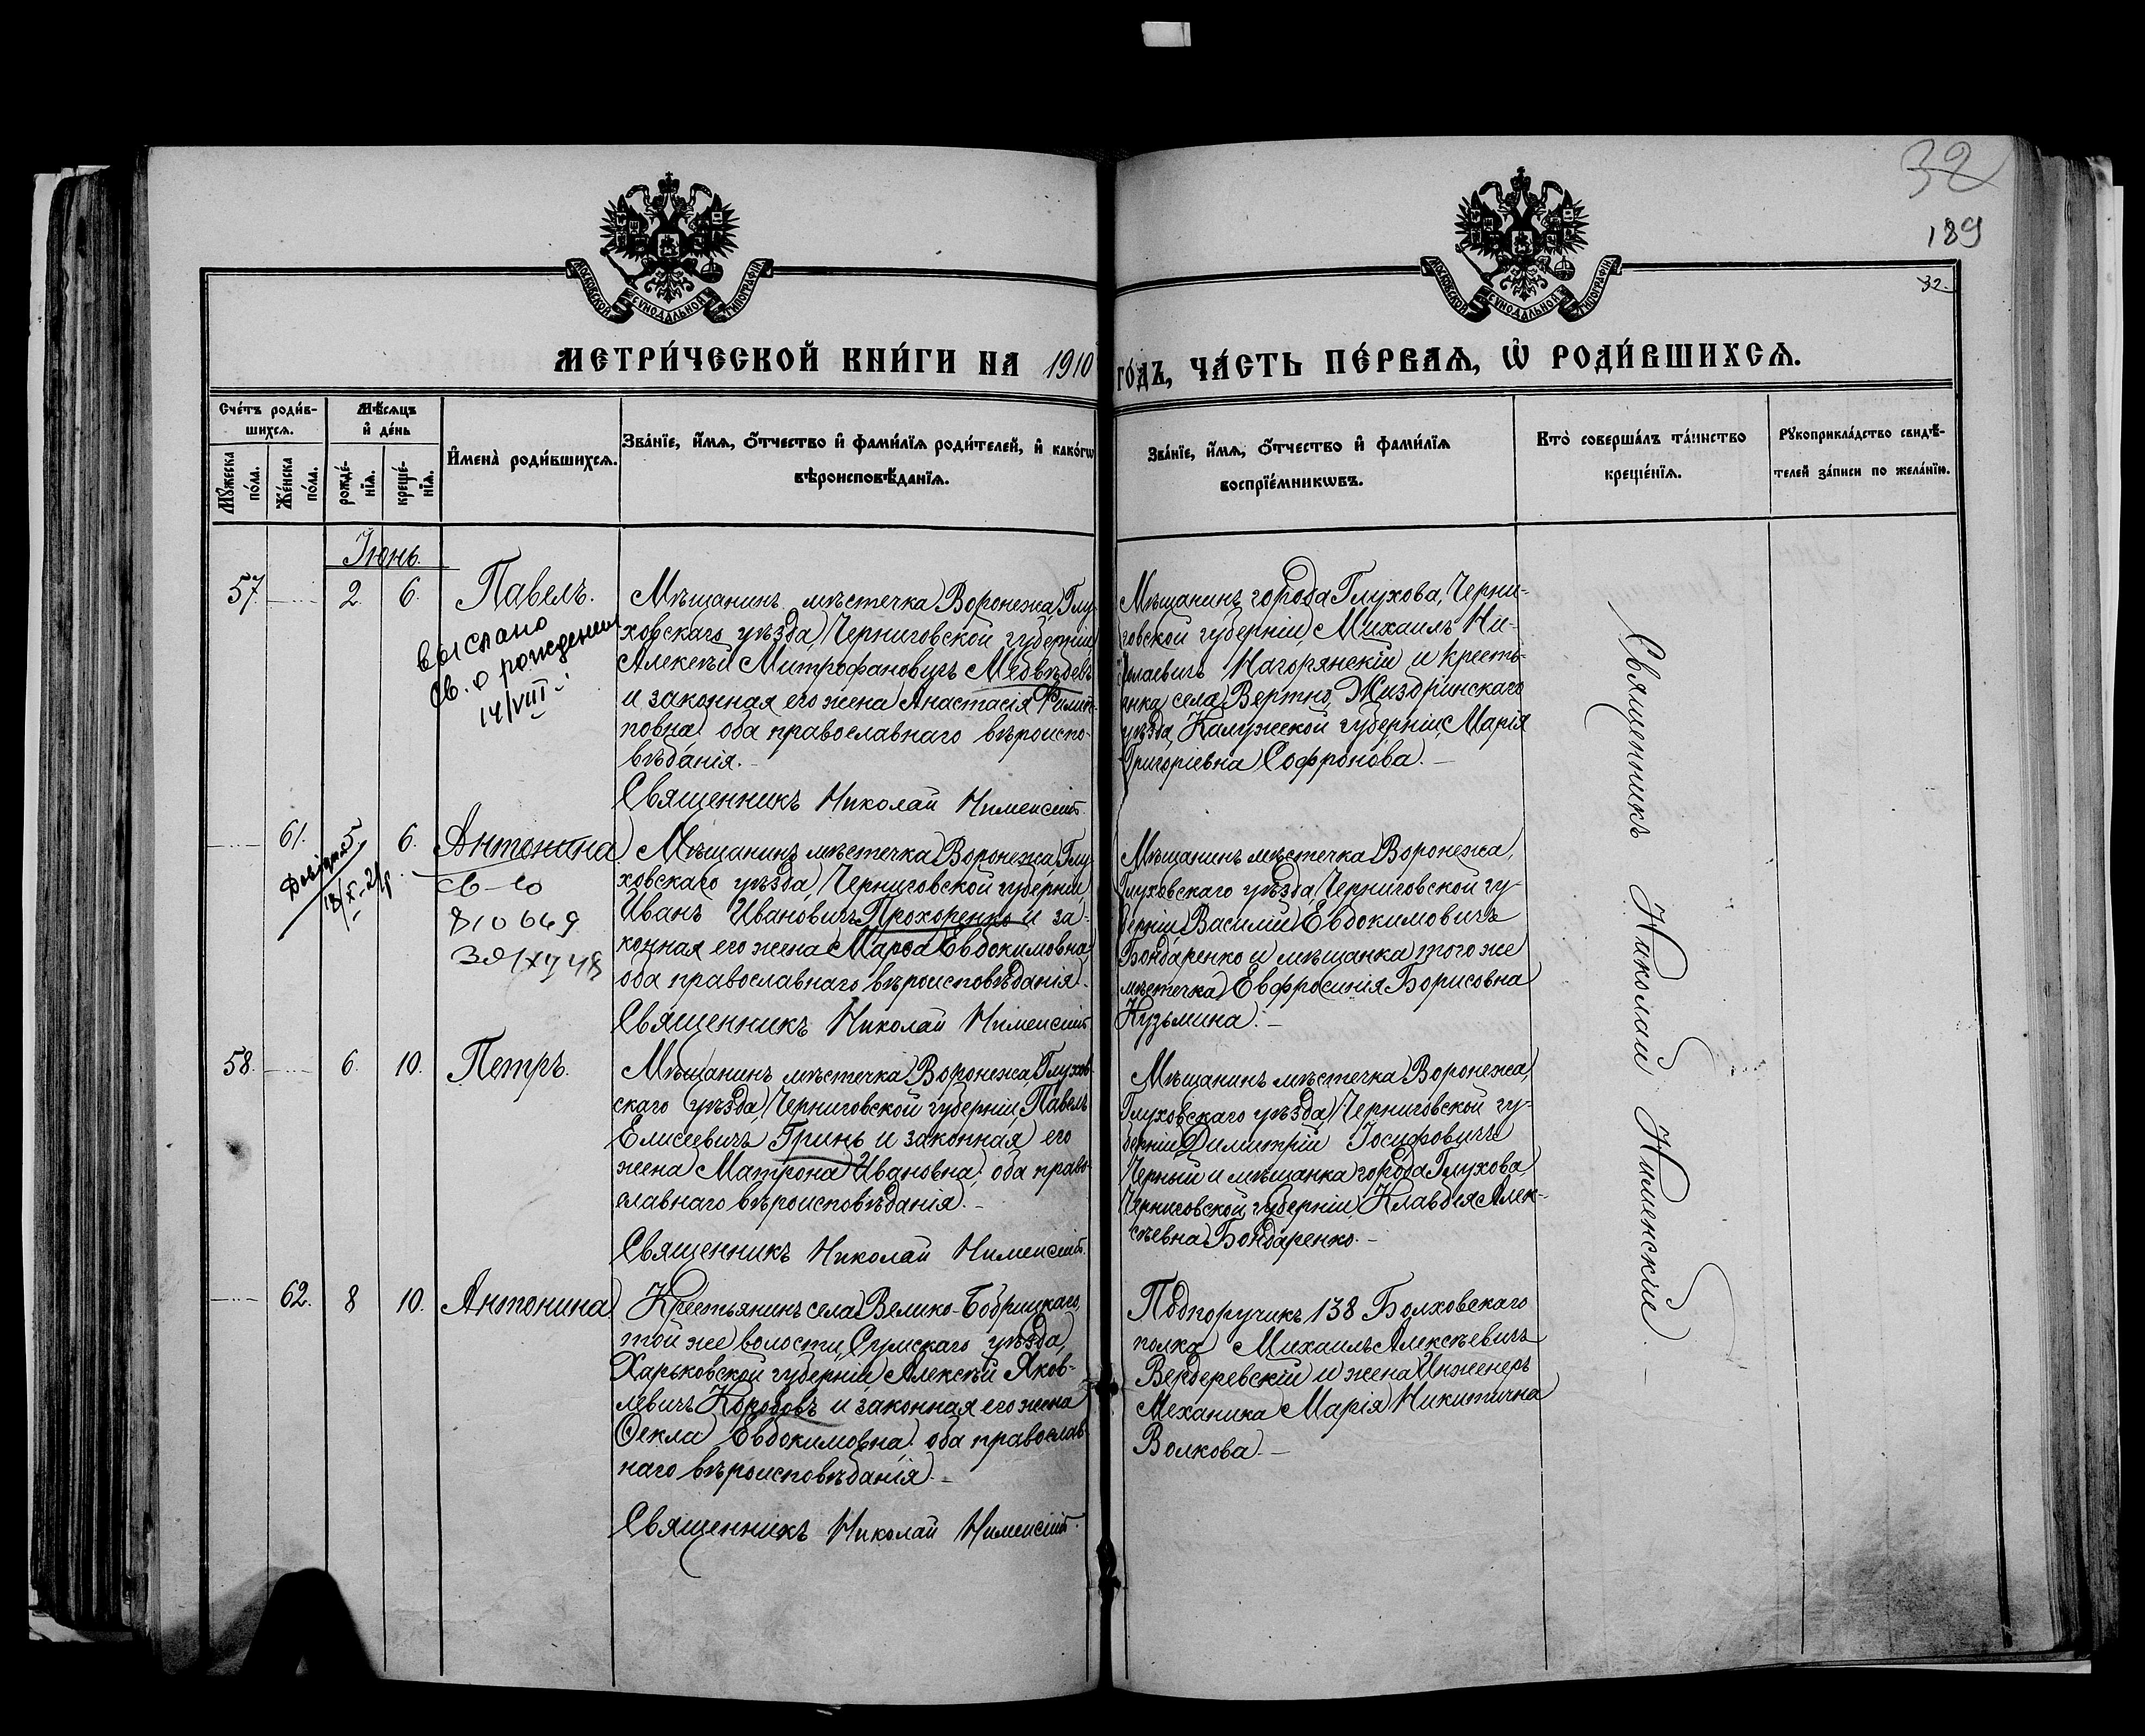 32
189
32.
МОСКОВСКОЙ СѴНОДАЛЬНОЙ ТИПОГРАФІИ
МОСКОВСКОЙ СѴНОДАЛЬНОЙ ТИПОГРАФІИ
МЕТРИ́ЧЕСКОЙ КНИ́ГИ НА 1910 ГО́ДЪ, ЧА́СТЬ ПЕ́РВАѦ, Ѡ҆ РОДИ́ВШИХСѦ.
Сче́тъ роди́в-
шихсѧ.
Мѣ́сѧцъ
и҆ де́нь
Мꙋ́жеска
по́ла.
Же́нска
по́ла.
рожде́-
нїѧ.
креще́-
нїѧ.
И҆мена̀ роди́вшихсѧ.
Зва́нїе, и҆́мѧ, ѻ҆́тчество и҆ фами́лїѧ роди́телей, и҆ како́гѡ
вѣроисповѣ́данїѧ.
Зва́нїе, и҆́мѧ, ѻ҆́тчество и҆ фами́лїѧ
воспрїе́мникѡвъ.
Кто̀ соверша́лъ та́инство
креще́нїѧ.
Рꙋкоприкла́дство свидѣ́-
телей за́писи по жела́нїю.
Іюнь.
57. 2. 6. Павелъ.
выслано
св. о рождении
14/VIII
Мѣщанинъ мѣстечка Воронежа, Глу-
ховскаго уѣзда, Черниговской губерніи
Алексѣй Митрофановичъ Медвѣдевъ
и законная его жена Анастасія Филип-
повна, оба православнаго вѣроиспо-
вѣданія.
Священникъ Николай
Мѣщанинъ города Глухова, Черни-
говской губерніи, Михаилъ Ни-
колаевичъ Нагорянскій и кресть-
янка села Вертно, Жиздринскаго
уѣзда, Калужской губерніи, Марія
Григоріевна Софронова.
61. 5. 6. Антонина
18/X-21р.
св-во
810669
Мѣщанинъ мѣстечка Воронежа, Глу-
ховскаго уѣзда, Черниговской губерніи,
Иванъ Ивановичъ Прохоренко и за-
конная его жена Марѳа Евдокимовна,
оба православнаго вѣроисповѣданія.
Священникъ Николай
Мѣщанинъ мѣстечка Воронежа,
Глуховскаго уѣзда, Черниговской гу-
берніи Василій Евдокимовичъ
Бондаренко и мѣщанка того же
мѣстечка Евфросинія Борисовна
Кузьмина.
58. 6. 10. Петръ.
Мѣщанинъ мѣстечка Воронежа, Глухов-
скаго уѣзда, Черниговской губерніи, Павелъ
Елисеевичъ Гринь и законная его
жена Матрона Ивановна, оба право-
славнаго вѣроисповѣданія.
Священникъ Николай
Мѣщанинъ мѣстечка Воронежа,
Глуховскаго уѣзда, Черниговской гу-
берніи Димитрій Іосифовичъ
Черный и мѣщанка города Глухова,
Черниговской губерніи, Клавдія Алек-
сѣевна Бондаренко.
62. 8 10. Антонина
Крестьянинъ села Велико-Бобрицкаго,
той же волости, Сумскаго уѣзда,
Харьковской губерніи, Алексѣй Яков-
левичъ Коробовъ и законная его жена
Ѳекла Евдокимовна, оба православ-
наго вѣроисповѣданія.
Священникъ Николай
Подпоручикъ 138 Болховскаго
полка Михаилъ Алексѣевичъ
Вердеревскій и жена Инженеръ
Механика Марія Никитична
Волкова.
Священникъ Николай